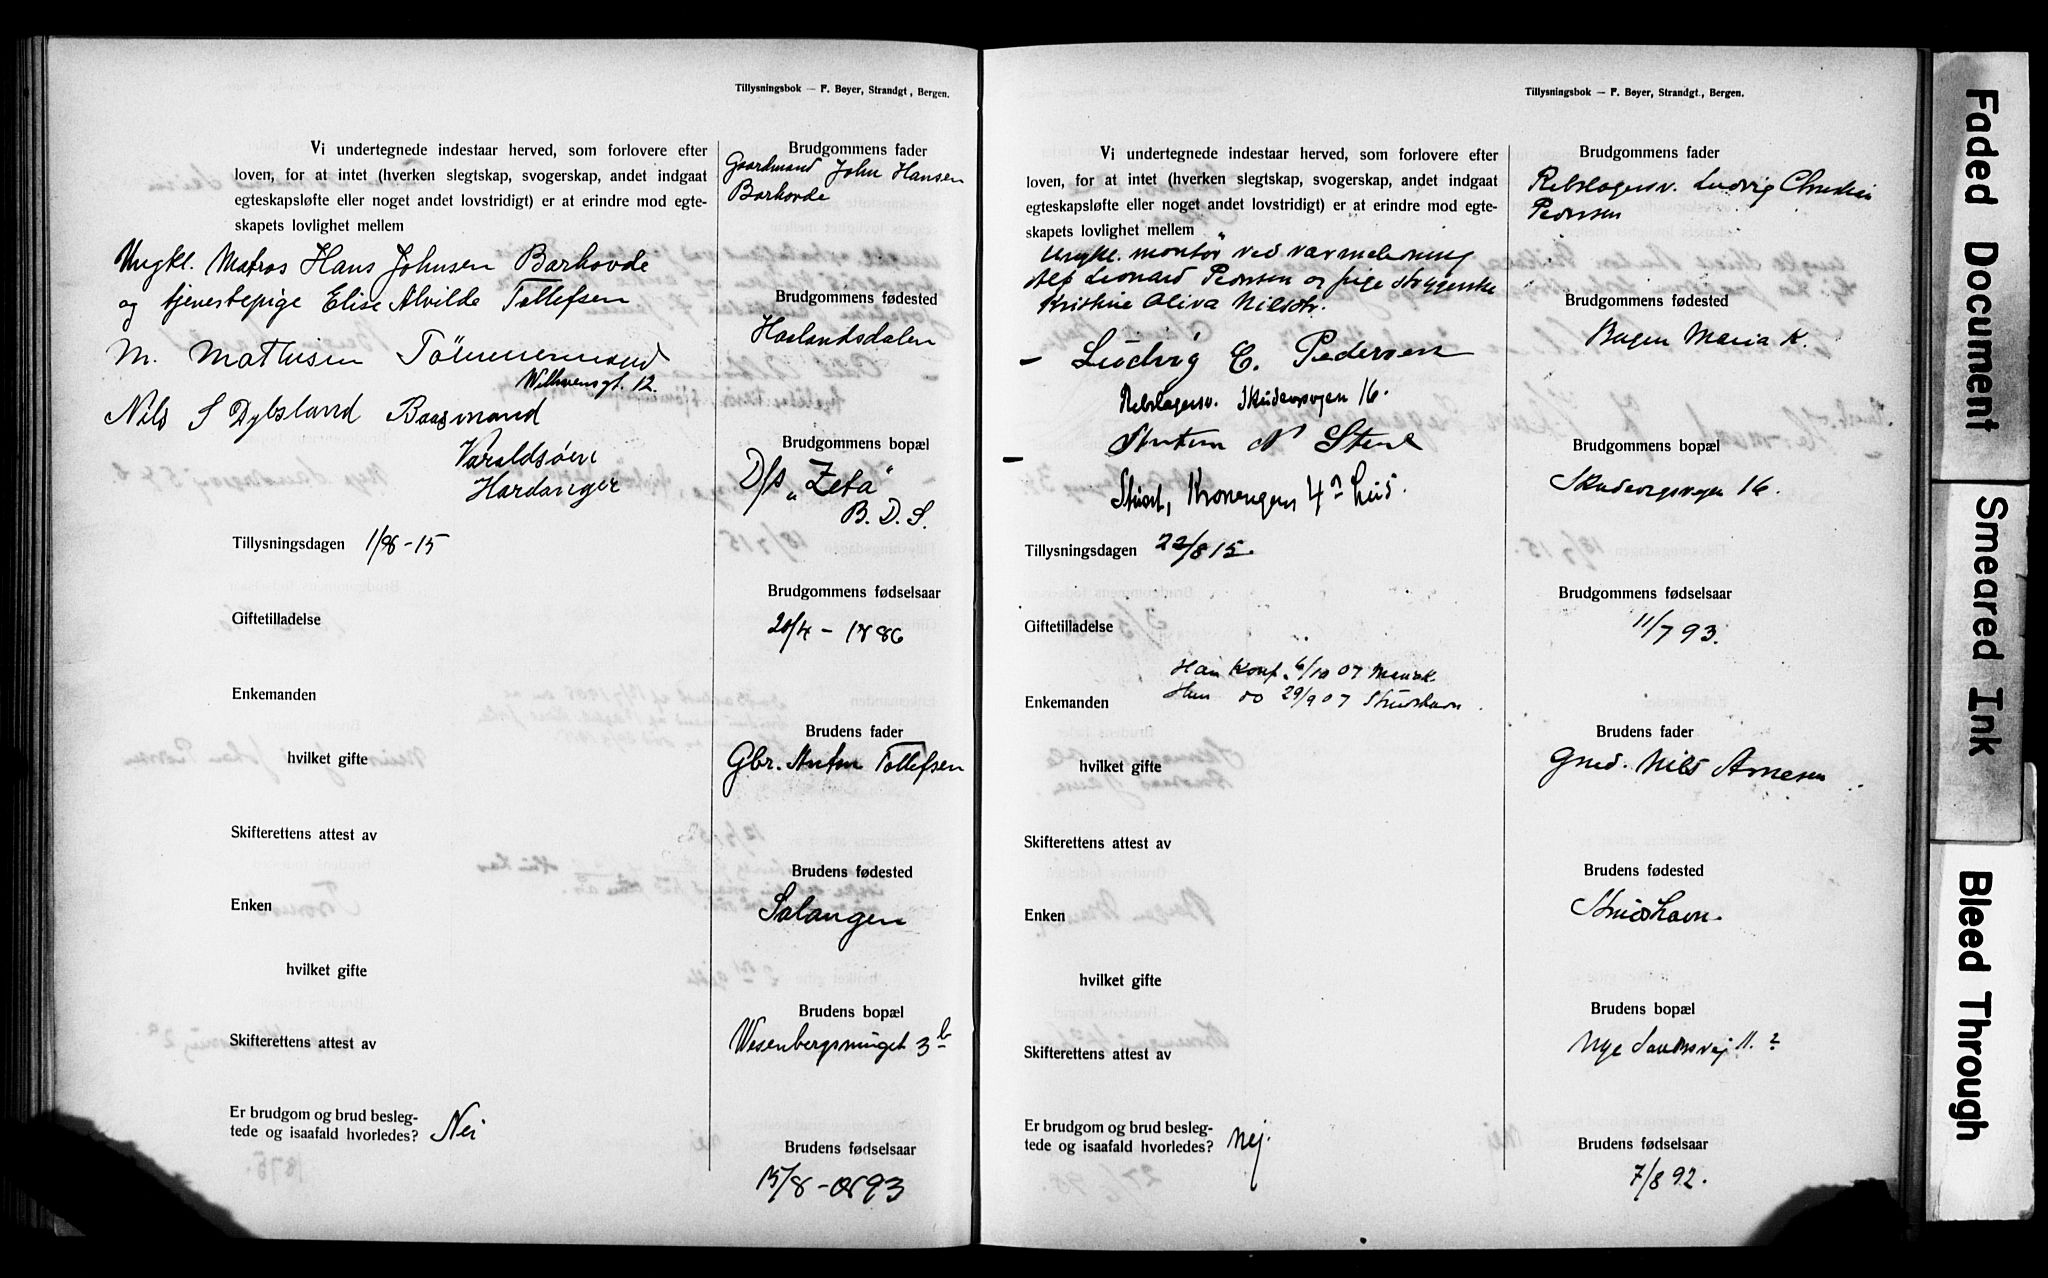 Tillysningsbok — F. Beyer, Strandgt., Bergen.
Vi undertegnede indestaar herved, som forlovere efter
loven, for at intet (hverken slegtskap, svogerskap, andet indgaat
egteskapsløfte eller noget andet lovstridigt) er at erindre mod egte-
skapets lovlighet mellem
Ungkl. Matros Hans Johnsen Barhovde
og tjenestepige Elise Alvilde Tollefsen
M. Mathisen Tömmermand
Wilhvensgt. 12.
Nils S Dylsland Baasmand
Varaldsøen
Hardanger
Tillysningsdagen 1/8-15
Giftetilladelse
Enkemanden
hvilket gifte
Skifterettens attest av
Enken
hvilket gifte
Skifterettens attest av
Er brudgom og brud besleg-
tede og isaafald hvorledes? Nei
Brudgommens fader
Gaardmand John Hansen
Barhovde
Brudgommens fødested
Haalandsdalen
Brudgommens bopæl
D/s „Zeta"
B. D. S.
Brudgommens fødselsaar
20/4 - 1886
Brudens fader
Gbr. Anton Tollefsen
Brudens fødested
Salangen
Brudens bopæl
Wesenbergsmuget 3 b
Brudens fødselsaar
15/8 - 93
Tillysningsbok — F. Beyer, Strandgt., Bergen.
Vi undertegnede indestaar herved, som forlovere efter
loven, for at intet (hverken slegtskap, svogerskap, andet indgaat
egteskapsløfte eller noget andet lovstridigt) er at erindre mod egte-
skapets lovlighet mellem
Ungkl. montör ved varmeledning
Alf Leonard Pedersen og pige strygerske
Kristine Oliva Nilsdtr.
— Ludvig C. Pedersen
Rebslagersv. Skuteviksveien 16.
— Anton N Stene
Stuert, Kronengens 4 hus.
Tillysningsdagen 22/8 15.
Giftetilladelse
Han Konf. 6/10 07 Mariak.
Hun do 29/9 07 Strudshavn
Enkemanden
hvilket gifte
Skifterettens attest av
Enken
hvilket gifte
Skifterettens attest av
Er brudgom og brud besleg-
tede og isaafald hvorledes? Nej.
Brudgommens fader
Rebslagersv. Ludvig Christian
Pedersen
Brudgommens fødested
Bergen Maria K.
Brudgommens bopæl
Skuteviksveien 16.
Brudgommens fødselsaar
11/7 93.
Brudens fader
Gmd. Nils Arnesen
Brudens fødested
Strudshavn.
Brudens bopæl
Nye Sandvsvej 11.
Brudens fødselsaar
7/8 92.
Faded Document
Smeared Ink
Bleed Through